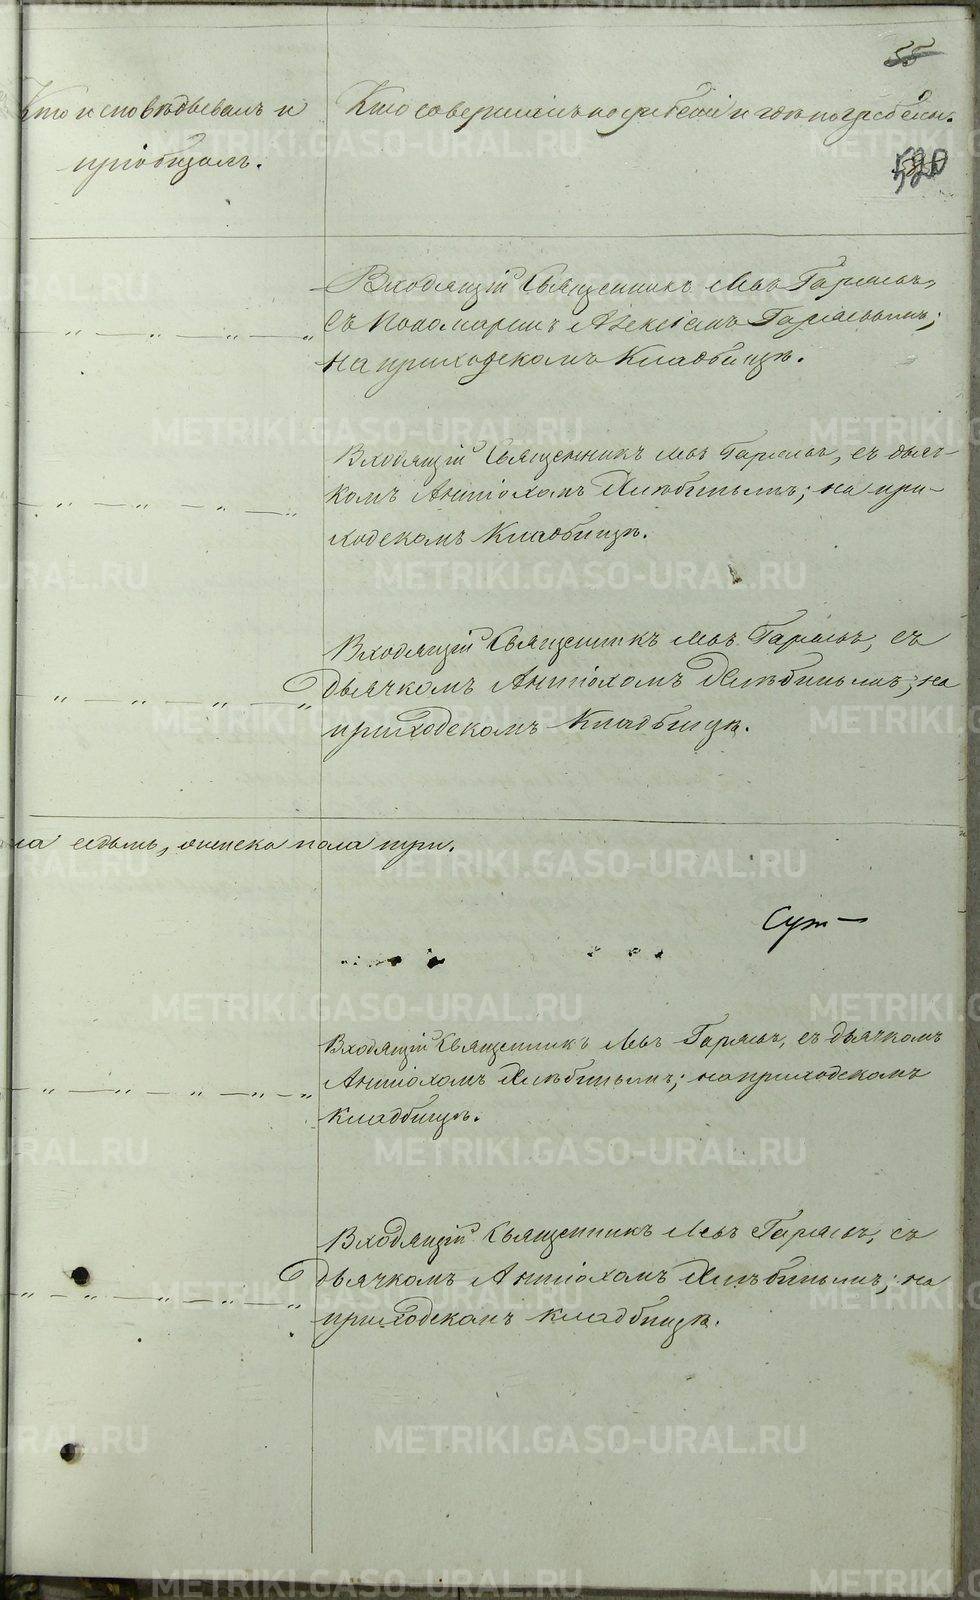 55
Кто исповѣдывалъ и
пріобщалъ.
Кто совершалъ погребеніе и гдѣ погребены.
520
Входящій Священникъ Левъ Гаряевъ,
съ Пономаремъ Алексіемъ Гаряевымъ;
на приходскомъ Кладбищѣ.
Входящій Священникъ Левъ Гаряевъ, съ дьяч-
комъ Антіохомъ Хлѣбинымъ; на при-
ходскомъ Кладбищѣ.
Входящій Священникъ Левъ Гаряевъ, съ
дьячкомъ Антіохомъ Хлѣбинымъ; на
приходскомъ Кладбищѣ.
ла седьмь, женска пола три.
Входящій Священникъ Левъ Гаряевъ, съ дьячкомъ
Антіохомъ Хлѣбинымъ; на приходскомъ
Кладбищѣ.
Входящій Священникъ Левъ Гаряевъ, съ
дьячкомъ Антіохомъ Хлѣбинымъ; на
приходскомъ кладбищѣ.
METRIKI.GASO-URAL.RU